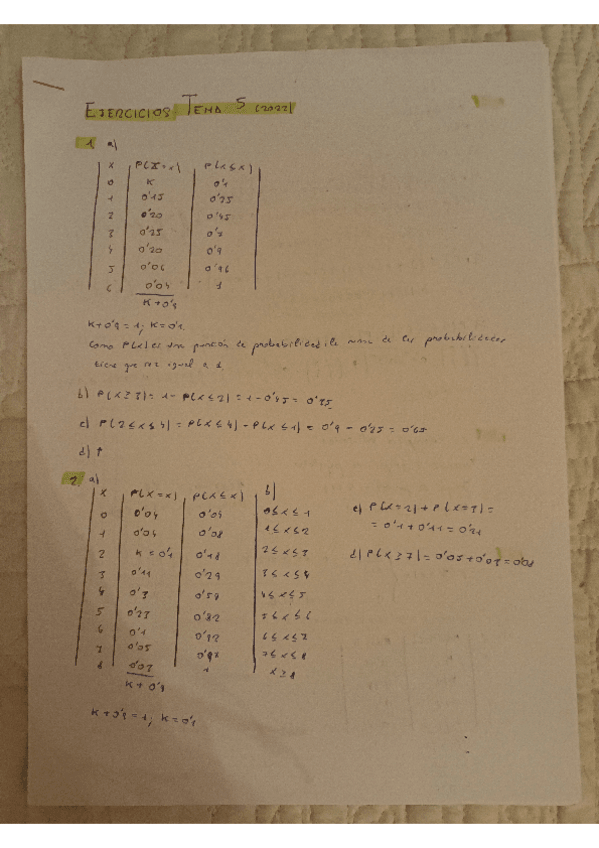 EJERCICIOS TEMA 5 (2022)
1 a)
X | P(X=x) | P(X≤x)
0 | K | 0'1
1 | 0'15 | 0'25
2 | 0'20 | 0'45
3 | 0'25 | 0'7
4 | 0'20 | 0'9
5 | 0'06 | 0'96
6 | 0'04 | 1
K+0'9
K+0'9=1; K=0'1
Como P(x) es una función de probabilidad, la suma de las probabilidades
tiene que ser igual a 1.
b) P(X≥3)=1-P(X≤2)=1-0'45=0'55
c) P(2≤X≤4)=P(X≤4)-P(X≤1)=0'9-0'25=0'65
d) 1
2 a)
X | P(X=x) | P(X≤x) | b)
0 | 0'04 | 0'04 | 0≤X≤1
1 | 0'04 | 0'08 | 1≤X≤2
2 | K=0'1 | 0'18 | 2≤X≤3
3 | 0'11 | 0'29 | 3≤X≤4
4 | 0'3 | 0'59 | 4≤X≤5
5 | 0'23 | 0'82 | 5≤X≤6
6 | 0'1 | 0'92 | 6≤X≤7
7 | 0'05 | 0'97 | 7≤X≤8
8 | 0'03 | 1 | X≥8
K+0'9
K+0'9=1; K=0'1
c) P(X=2)+P(X=3)=
=0'1+0'11=0'21
d) P(X≥7)=0'05+0'03=0'08